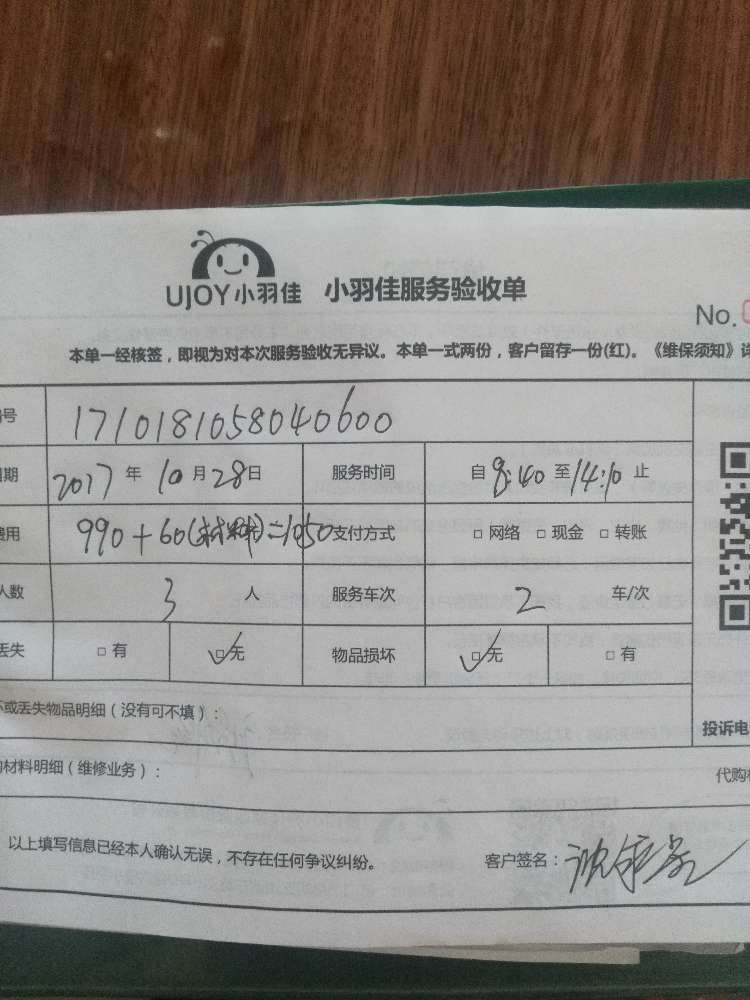 UJOY小羽佳 小羽佳服务验收单
No.
本单一经核签，即视为对本次服务验收无异议。本单一式两份，客户留存一份(红)。《维保须知》详
号 1710181058040600
期 2017 年 10 月 28 日 服务时间 自 8:40 至 14:10 止
费用 990+60(材料)=1050 支付方式 □ 网络 □ 现金 □ 转账
人数 3 人 服务车次 2 车/次
丢失 □ 有 ☑ 无 物品损坏 ☑ 无 □ 有
坏或丢失物品明细（没有可不填）:
投诉电
材料明细（维修业务）: 代购
以上填写信息已经本人确认无误，不存在任何争议纠纷。 客户签名: